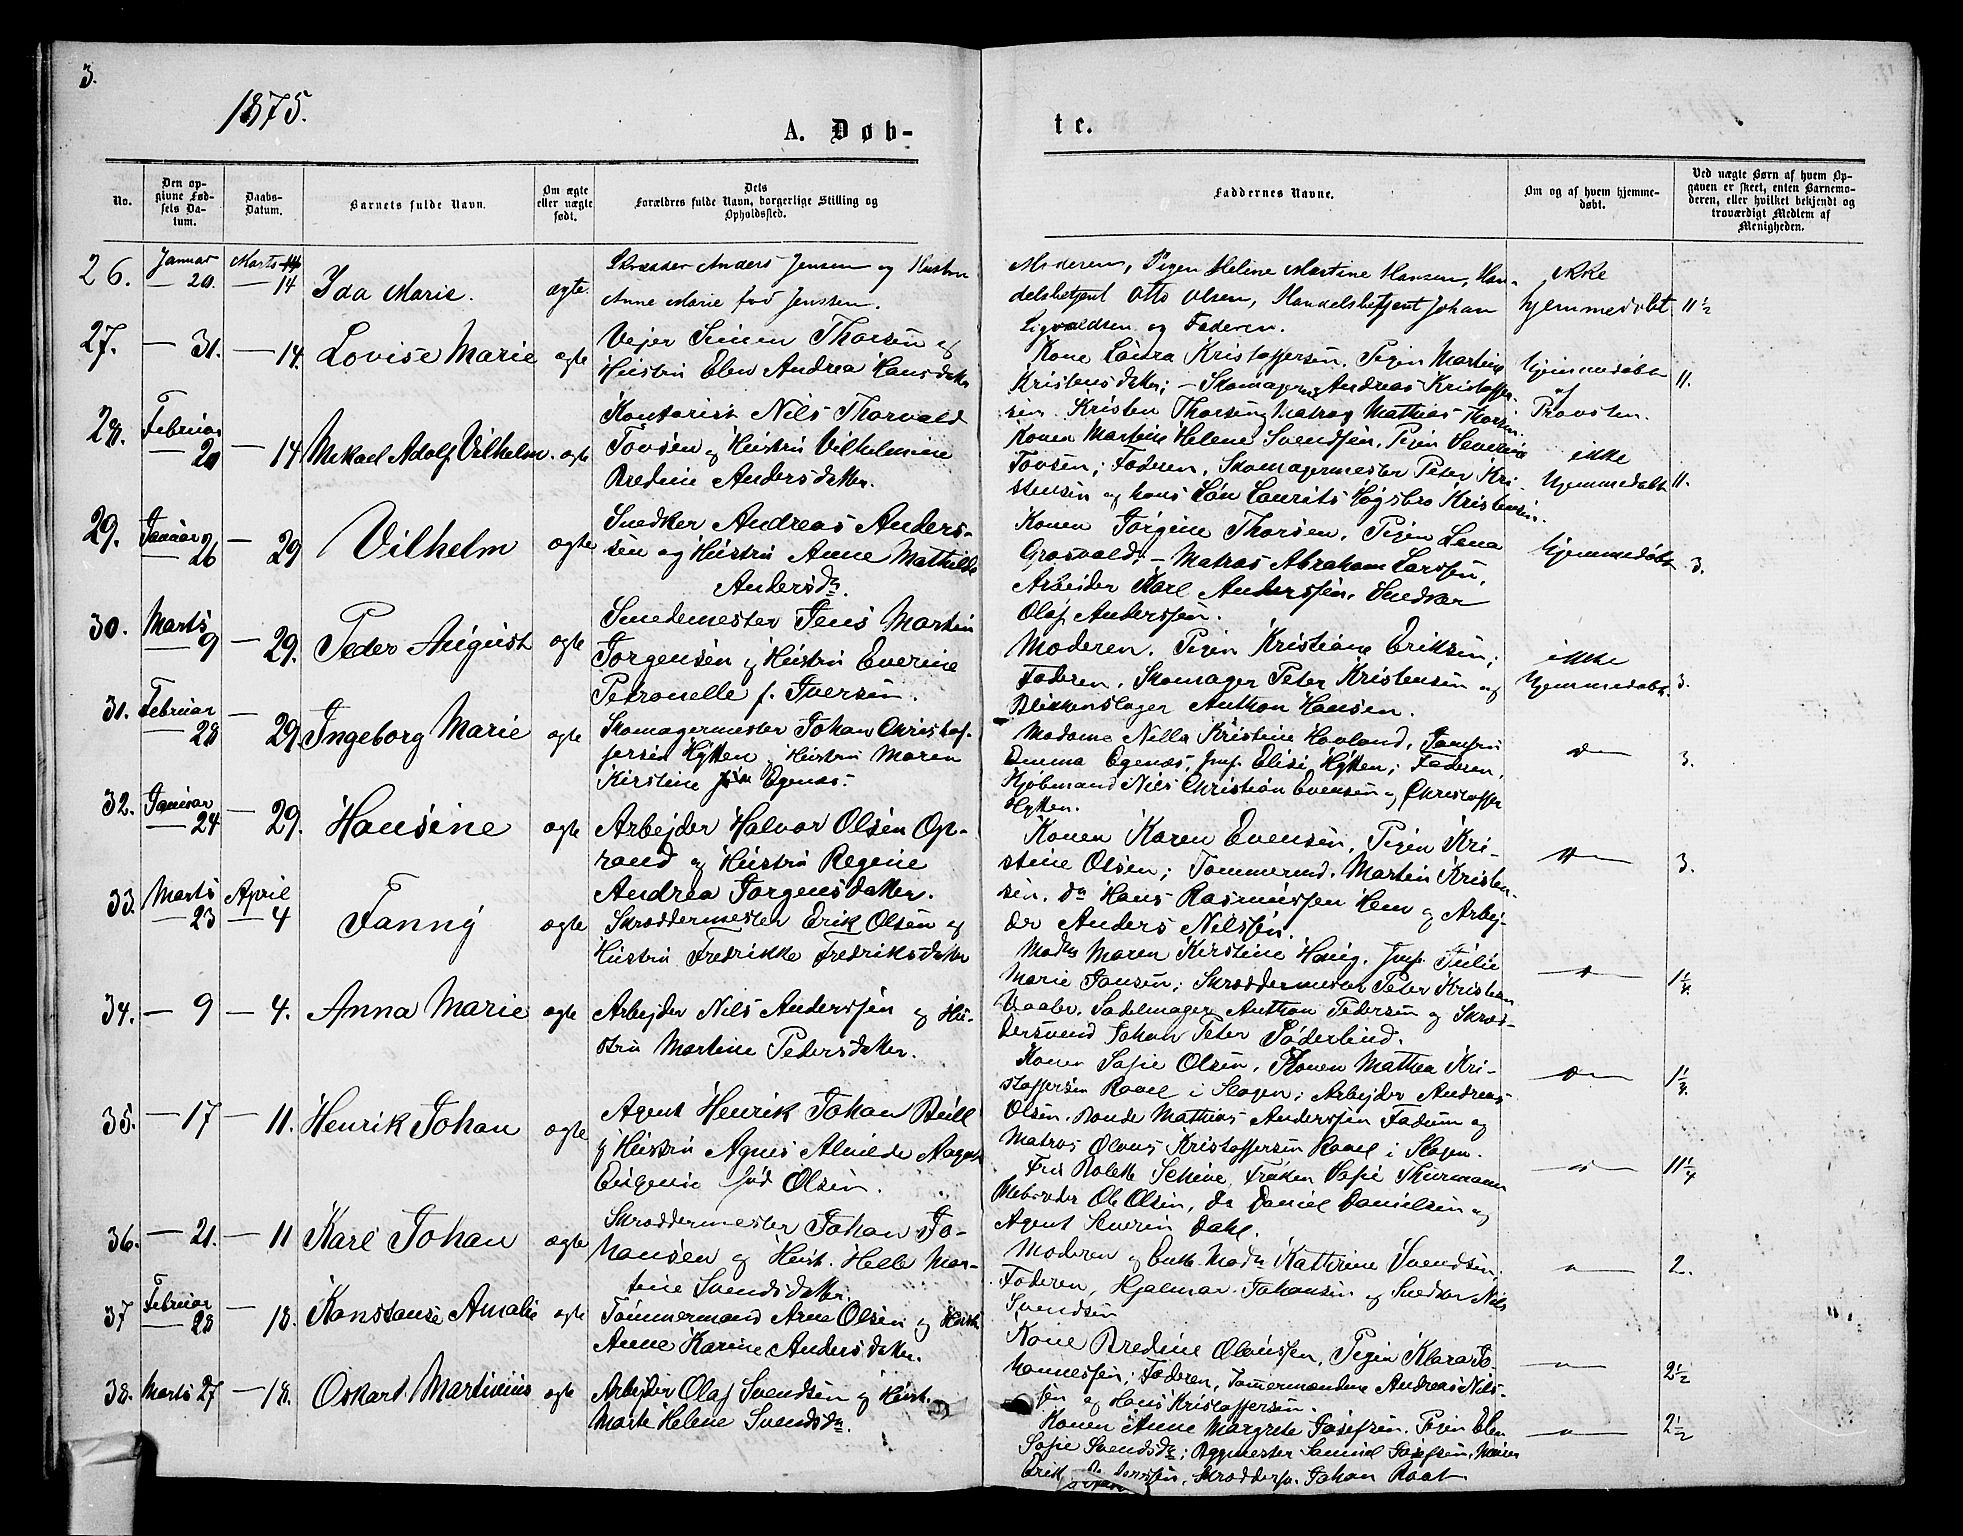 3.
1875.
A. Døb-
te.
No.
Den op-
givne Fød-
sels Da-
tum.
Daabs-
Datum.
Barnets fulde Navn.
Om ægte
eller uægte
født.
Dets
Forældres fulde Navn, borgerlige Stilling og
Opholdssted.
Faddernes Navne.
Om og af hvem hjemme-
døbt.
Ved uægte Børn af hvem Op-
gaven er skeet, enten Barnemo-
deren, eller hvilket bekjendt og
troværdigt Medlem af
Menigheden.
26.
Januar
— 20.
Marts
— 14
Ida Marie.
ægte
Skrædder Anders Jensen og Hustru
Anne Marie fød Jenssen.
Moderen, Pigen Helene Martine Hansen, Han-
delsbetjent Otto Olsen, Handelsbetjent Johan
Sigvaldsen og Faderen.
ikke
hjemmedøbt
11 1/2
27.
— 31.
— 14.
Lovise Marie
ægte
Vejer Simen Thorsen og
Hustru Elen Andrea Hansdatter
Kone Laura Kristoffersen, Pigen Martine
Kristensdatter; – Skomager Andreas Kristoffer-
sen. Kristen Thorsen og Matros Mathias Thorsen.
hjemmedøbt
af
Provsten.
11.
28.
Februar
— 20
— 14
Mikael Adolf Vilhelm.
ægte
Kontorist Nils Thorvald
Tovsen og Hustru Vilhelmine
Bredine Andersdatter.
Konen Martine Helene Svendsen, Pigen Severine
Tovsen; Faderen, Skomagermester Peter Kri-
stensen og hans Søn Laurits Høgsbro Kristensen.
ikke
hjemmedøbt
11.
29.
Januar
— 26
— 29
Vilhelm
ægte
Snedker Andreas Anders-
sen og Hustru Anne Mathilde
Andersdr.
Konen Jørgine Thorsen, Pigen Lena
Grosvold; – Matros Abraham Larssen,
Arbeider Karl Anderssen, Snedker
Olaf Anderssen.
hjemmedøbt
3.
30.
Marts
— 9
— 29.
Peder August
ægte
Smedemester Jens Martin
Jørgensen og Hustru Everine
Petronelle f. Iversen.
Moderen. Pigen Kristiane Eriksen;
Faderen, Skomager Peter Kristensen og
Blikkenslager Anthon Hansen.
ikke
hjemmedøbt.
3.
31.
Februar
— 28
— 29.
Ingeborg Marie
ægte
Skomagermester Johan Christof-
fersen Hytten og Hustru Maren
Kirstine Egenæs.
Madame Nilla Kristine Hovland, Jomfru
Emma Egenæs, Jmf. Elise Hytten; Faderen,
Kjøbmand Nils Christian Evensen og Christoffer
Hytten.
3.
32.
Januar
— 24
— 29.
Hansine
ægte
Arbejder Halvor Olsen Op-
rand og Hustru Regine
Andrea Jørgensdatter.
Konen Karen Evensen, Pigen Kri-
stine Olsen; Tømmermd. Martin Kristen-
sen, do Hans Rasmussen Hem og Arbej-
der Anders Nilssen.
3.
33.
Marts
— 23
April
— 4
Fanny
ægte
Skræddermester Erik Olsen og
Hustru Fredrikke Fredriksdatter
Madm Maren Kirstine Haug, Jmf. Julie
Marie Jansen; Skræddermester Peter Kristian
Vaaler, Sadelmager Anthon Pedersen og Skræd-
dersvend Johan Peter Søderlund.
1 1/4.
34.
— 9
— 4.
Anna Marie
ægte
Arbejder Nils Anderssen og Hu-
stru Martine Pedersdatter.
Konen Sofie Olsen, Konen Mathea Kri-
stoffersen Raael i Slagen; Arbejder Andreas
Olsen, Bonde Mathias Anderssen Fadum og
Matros Olaves Kristoffersen Raael i Slagen.
35.
— 17
— 11.
Henrik Johan
ægte
Agent Henrik Johan Bull
og Hustru Agnes Alvilde Aagot
Eugenie fød Olsen.
Frk Bolette Schive, Frøken Sofie Thurmann
Skibsreder Ole Olsen, do Daniel Danielsen og
Agent Severin Dahl.
11 1/4
36.
— 21.
— 11
Karl Johan
ægte
Skræddermester Johan Jo-
hansen og Hust. Helle Mar-
tine Svendsdatter.
Moderen og Enke-Madm Kathrine Svendsen;
Faderen, Hjalmar Johansen og Snedker Nils
Svendsen
2.
37
Februar
— 28
— 18.
Konstanse Amalie
ægte
Tømmermand Arne Olsen og Hust.
Anne Karine Andersdatter.
Kone Bredine Olaussen, Pigen Klara Jo-
hannessen; Faderen, Tømmermændene Andreas Nils-
sen og Hans Kristoffersen.
2 1/2
38.
Marts 27
— 18.
Oskar Martinius
ægte
Arbejder Olaf Svendsen og Hust.
Marte Helene Svendsdr.
Konen Anne Margrete Josefsen, Pigen Elen
Sofie Svendsdr; Byggmester Samuel Josefsen,
Erik Skræddersv. Johan Roat
2 1/2